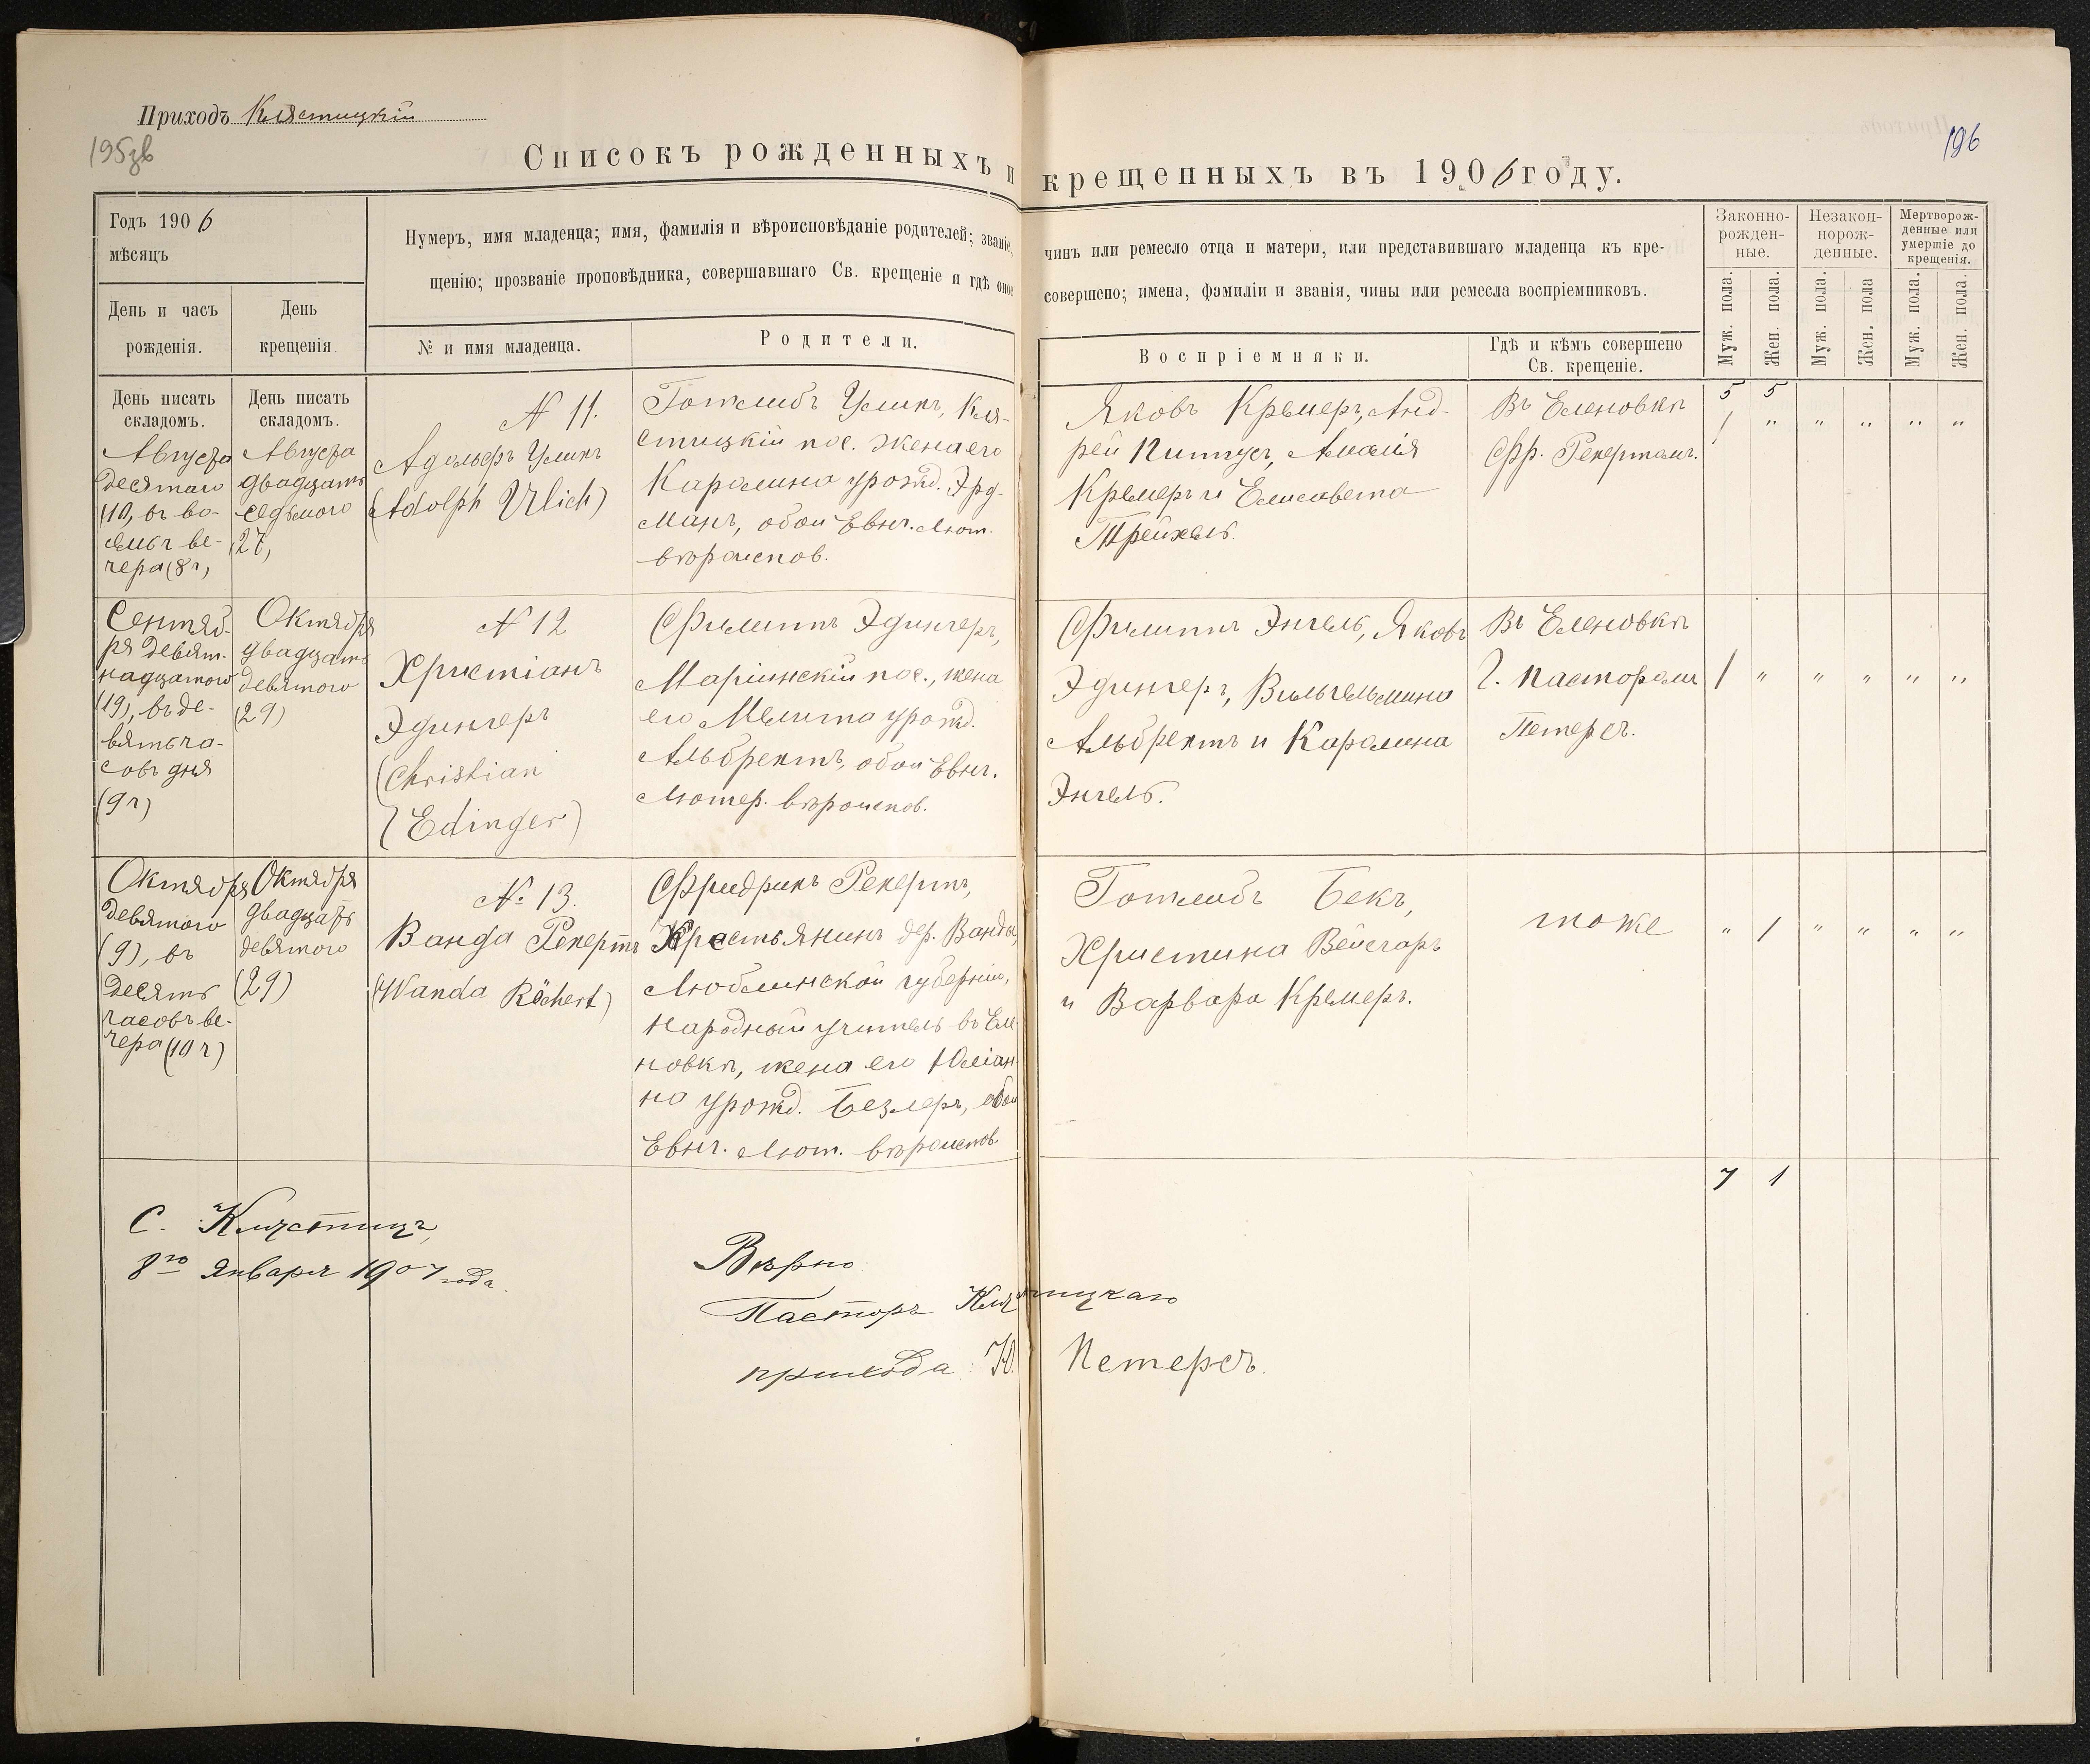 Приходъ Клястицкій
195зв
196
Списокъ рожденныхъ и крещенныхъ въ 1906 году.
Годъ 1906
мѣсяцъ
День и часъ
рожденія.
День
крещенія
Нумеръ, имя младенца; имя, фамилія и вѣроисповѣданіе родителей; званіе, чинъ или ремесло отца и матери, или представившаго младенца къ кре-
щенію; прозваніе проповѣдника, совершавшаго Св. крещеніе и гдѣ оное совершено; имена, фамиліи и званія, чины или ремесла воспріемниковъ.
№ и имя младенца.
Родители.
Воспріемники.
Гдѣ и кѣмъ совершено
Св. крещеніе.
Законно-
рожден-
ные.
Незакон-
норож-
денные.
Мертворож-
денные или
умершіе до
крещенія.
Муж. пола.
Жен. пола.
Муж. пола.
Жен. пола
Муж. пола.
Жен. пола.
День писать
складомъ.
Августа
десятаго
(10, въ во-
семь ве-
чера (8 ч,
День писать
складомъ.
Августа
двадцать
седьмого
(27,
N 11.
Адольфъ Улихъ
(Adolph Ulich)
Готлибъ Улихъ, Кля-
стицкій пос. жена его
Каролина урожд. Эрд-
манъ, обои Евнг. Лют.
вѣроиспов.
Яковъ Кремеръ, Анд-
рей Пиппусъ, Амалія
Кремеръ и Елисавета
Трейхель.
Въ Еленовкѣ
Фр. Рехертомъ.
5 5
1 " " " " "
Сентяб-
ря девят-
надцатого
(19), въ де-
вять ча-
совъ дня
(9 ч)
Октября
двадцать
девятого
(29)
N 12
Христіанъ
Эдингеръ
(Christian
(Edinger)
Филиппъ Эдингеръ,
Маріинскій пос., жена
его Мелита урожд.
Альбрехтъ, обои Евнг.
Лютер. вѣроиспов.
Филиппъ Энгель, Яковъ
Эдингеръ, Вильгельмина
Альбрехтъ и Каролина
Энгель.
Въ Еленовкѣ
Г. Пасторомъ
Петерсъ.
1 " " " " "
Октября
девятого
(9), въ
десять
часовъ ве-
чера (10 ч)
Октября
двадцать
девятого
(29)
№ 13.
Ванда Рехертъ
(Wanda Röchert)
Фридрихъ Рехертъ,
Крестьянинъ дер. Ванды,
Люблинской губерніи,
народный учитель въ Еле
новкѣ, жена его Юліан-
на урожд. Безлеръ, обои
Евнг. Лют. вѣроиспов.
Готлибъ Бекъ,
Христина Вейсгаръ
и Варвара Кремеръ.
тоже
" 1 " " " "
7 1
С. Клястицъ,
8го Января 1907 года.
Вѣрно:
Пасторъ Клястицкаго
прихода: Ю. Петерсъ.